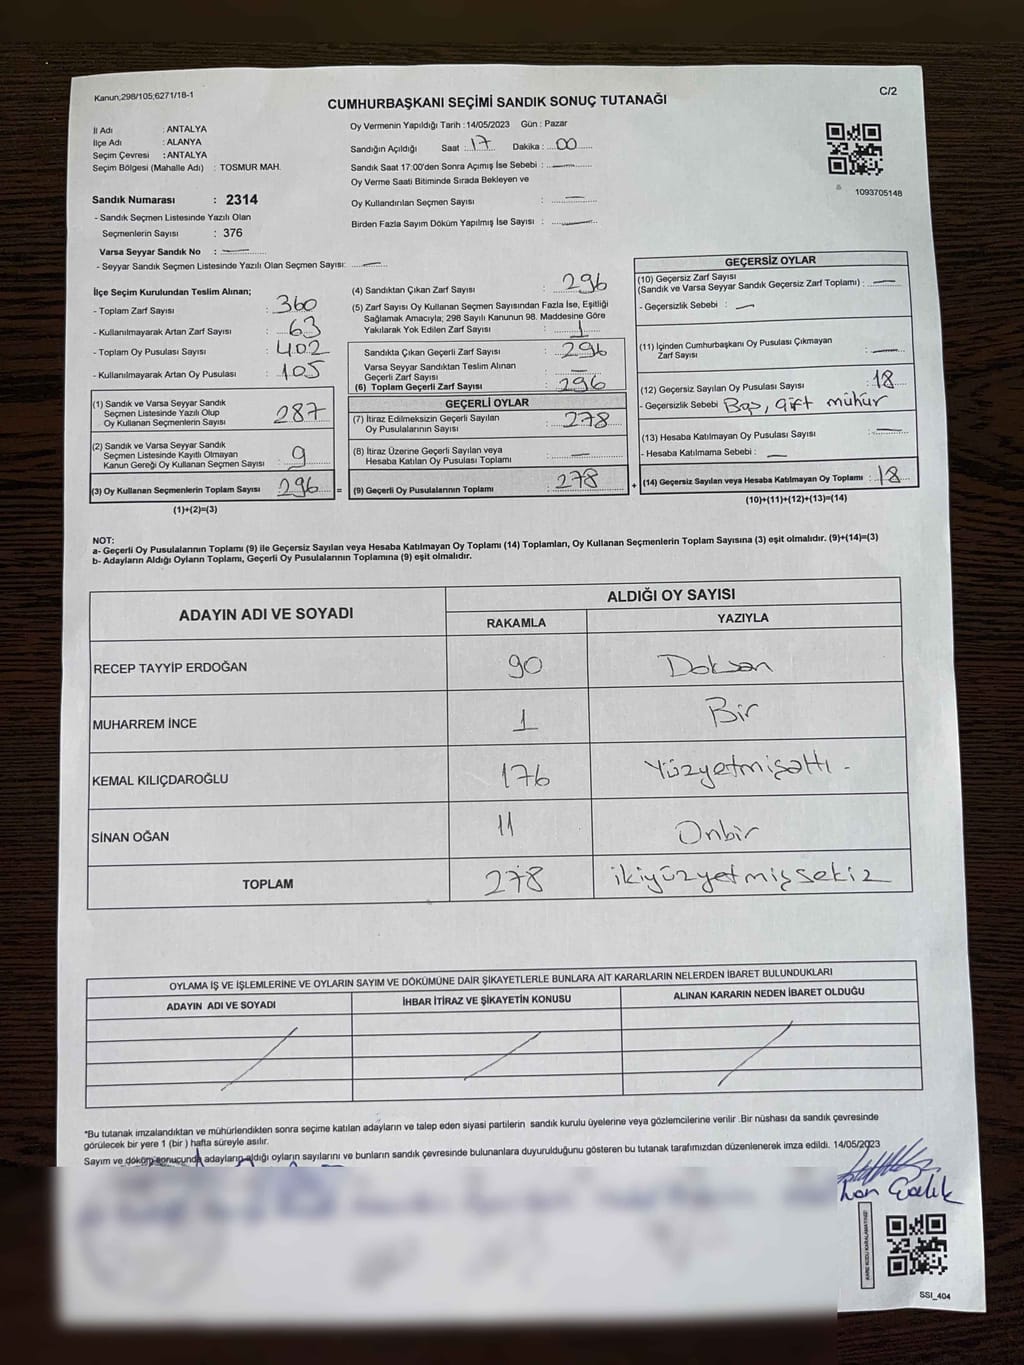 Kanun,298/105;6271/18-1
C/2
CUMHURBAŞKANI SEÇİMİ SANDIK SONUÇ TUTANAĞI
İl Adı : ANTALYA
İlçe Adı : ALANYA
Seçim Çevresi : ANTALYA
Seçim Bölgesi (Mahalle Adı) : TOSMUR MAH.
Sandık Numarası : 2314
- Sandık Seçmen Listesinde Yazılı Olan
Seçmenlerin Sayısı : 376
Varsa Seyyar Sandık No : —
- Seyyar Sandık Seçmen Listesinde Yazılı Olan Seçmen Sayısı: —
Oy Vermenin Yapıldığı Tarih :14/05/2023 Gün : Pazar
Sandığın Açıldığı Saat : 17 Dakika : 00
Sandık Saat 17:00'den Sonra Açımış İse Sebebi : —
Oy Verme Saati Bitiminde Sırada Bekleyen ve
Oy Kullandırılan Seçmen Sayısı : —
Birden Fazla Sayım Döküm Yapılmış İse Sayısı : —
1093705148
İlçe Seçim Kurulundan Teslim Alınan;
- Toplam Zarf Sayısı : 360
- Kullanılmayarak Artan Zarf Sayısı : 63
- Toplam Oy Pusulası Sayısı : 402
- Kullanılmayarak Artan Oy Pusulası : 105
(1) Sandık ve Varsa Seyyar Sandık
Seçmen Listesinde Yazılı Olup
Oy Kullanan Seçmenlerin Sayısı : 287
(2) Sandık ve Varsa Seyyar Sandık
Seçmen Listesinde Kayıtlı Olmayan
Kanun Gereği Oy Kullanan Seçmen Sayısı : 9
(3) Oy Kullanan Seçmenlerin Toplam Sayısı : 296 =
(1)+(2)=(3)
(4) Sandıktan Çıkan Zarf Sayısı : 296
(5) Zarf Sayısı Oy Kullanan Seçmen Sayısından Fazla İse, Eşitliği
Sağlamak Amacıyla; 298 Sayılı Kanunun 98. Maddesine Göre
Yakılarak Yok Edilen Zarf Sayısı : 1
Sandıkta Çıkan Geçerli Zarf Sayısı : 296
Varsa Seyyar Sandıktan Teslim Alınan
Geçerli Zarf Sayısı : —
(6) Toplam Geçerli Zarf Sayısı : 296
GEÇERLİ OYLAR
(7) İtiraz Edilmeksizin Geçerli Sayılan
Oy Pusulalarının Sayısı : 278
(8) İtiraz Üzerine Geçerli Sayılan veya
Hesaba Katılan Oy Pusulası Toplamı : —
(9) Geçerli Oy Pusulalarının Toplamı : 278 +
GEÇERSİZ OYLAR
(10) Geçersiz Zarf Sayısı
(Sandık ve Varsa Seyyar Sandık Geçersiz Zarf Toplamı) : —
- Geçersizlik Sebebi : —
(11) İçinden Cumhurbaşkanı Oy Pusulası Çıkmayan
Zarf Sayısı : —
(12) Geçersiz Sayılan Oy Pusulası Sayısı : 18
- Geçersizlik Sebebi : Boş, Çift mühür
(13) Hesaba Katılmayan Oy Pusulası Sayısı : —
- Hesaba Katılmama Sebebi : —
(14) Geçersiz Sayılan veya Hesaba Katılmayan Oy Toplamı : 18
(10)+(11)+(12)+(13)=(14)
NOT:
a- Geçerli Oy Pusulalarının Toplamı (9) ile Geçersiz Sayılan veya Hesaba Katılmayan Oy Toplamı (14) Toplamları, Oy Kullanan Seçmenlerin Toplam Sayısına (3) eşit olmalıdır. (9)+(14)=(3)
b- Adayların Aldığı Oyların Toplamı, Geçerli Oy Pusulalarının Toplamına (9) eşit olmalıdır.
ADAYIN ADI VE SOYADI
ALDIĞI OY SAYISI
RAKAMLA YAZIYLA
RECEP TAYYİP ERDOĞAN 90 Doksan
MUHARREM İNCE 1 Bir
KEMAL KILIÇDAROĞLU 176 Yüzyetmişaltı -
SİNAN OĞAN 11 Onbir
TOPLAM 278 ikiyüzyetmişsekiz
OYLAMA İŞ VE İŞLEMLERİNE VE OYLARIN SAYIM VE DÖKÜMÜNE DAİR ŞİKAYETLERLE BUNLARA AİT KARARLARIN NELERDEN İBARET BULUNDUKLARI
ADAYIN ADI VE SOYADI İHBAR İTİRAZ VE ŞİKAYETİN KONUSU ALINAN KARARIN NEDEN İBARET OLDUĞU
*Bu tutanak imzalandıktan ve mühürlendikten sonra seçime katılan adayların ve talep eden siyasi partilerin sandık kurulu üyelerine veya gözlemcilerine verilir .Bir nüshası da sandık çevresinde
görülecek bir yere 1 (bir ) hafta süreyle asılır.
Sayım ve döküm sonucunda adayların aldığı oyların sayılarını ve bunların sandık çevresinde bulunanlara duyurulduğunu gösteren bu tutanak tarafımızdan düzenlenerek imza edildi. 14/05/2023
KARE KODU KARALAMAYINIZ!
SSI_404